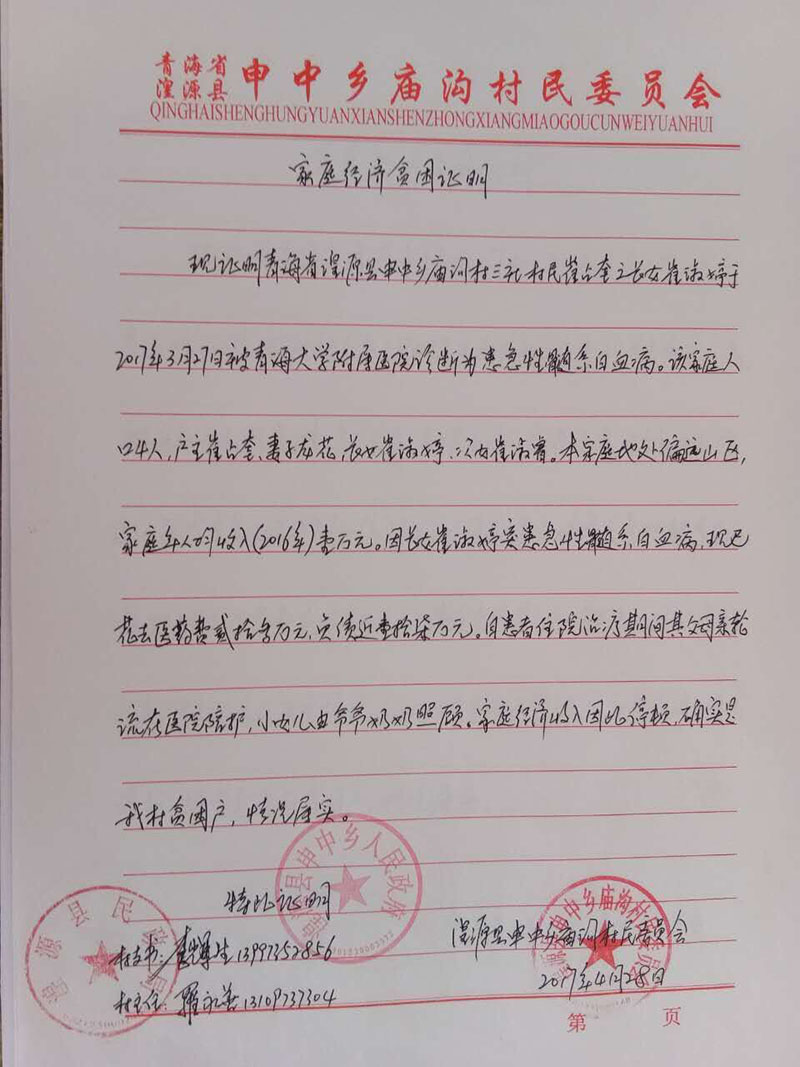 青海省
湟源县
申中乡庙沟村民委员会
QINGHAISHENGHUNGYUANXIANSHENZHONGXIANGMIAOGOUCUNWEIYUANHUI
家庭经济贫困证明
现证明青海省湟源县申中乡庙沟村三社村民崔占奎之长女崔淑婷于
2017年3月27日被青海大学附属医院诊断为患急性髓系白血病。该家庭人
口4人,户主崔占奎、妻子龙花,长女崔淑婷、次女崔淑睿。本家庭地处偏远山区,
家庭年人均收入(2016年)壹万元。因长女崔淑婷突患急性髓系白血病,现已
花去医药费贰拾多万元,负债近壹拾柒万元。自患者住院治疗期间其父母亲轮
流在医院陪护,小女儿由爷爷奶奶照顾。家庭经济收入因此停顿,确实是
我村贫困户,情况属实。
特此证明
湟源县申中乡人民政府
湟源县民政局
村支书:李 生13997352856
村主任:罗永善13109737304
申中乡庙沟村民委员会
湟源县申中乡庙沟村民委员会
2017年4月28日
第 页